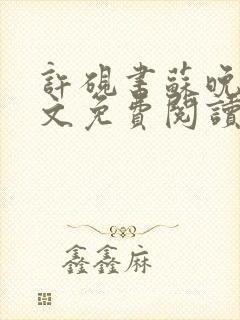 許硯書蘇晚
文免費閱讀
鑫鑫麻